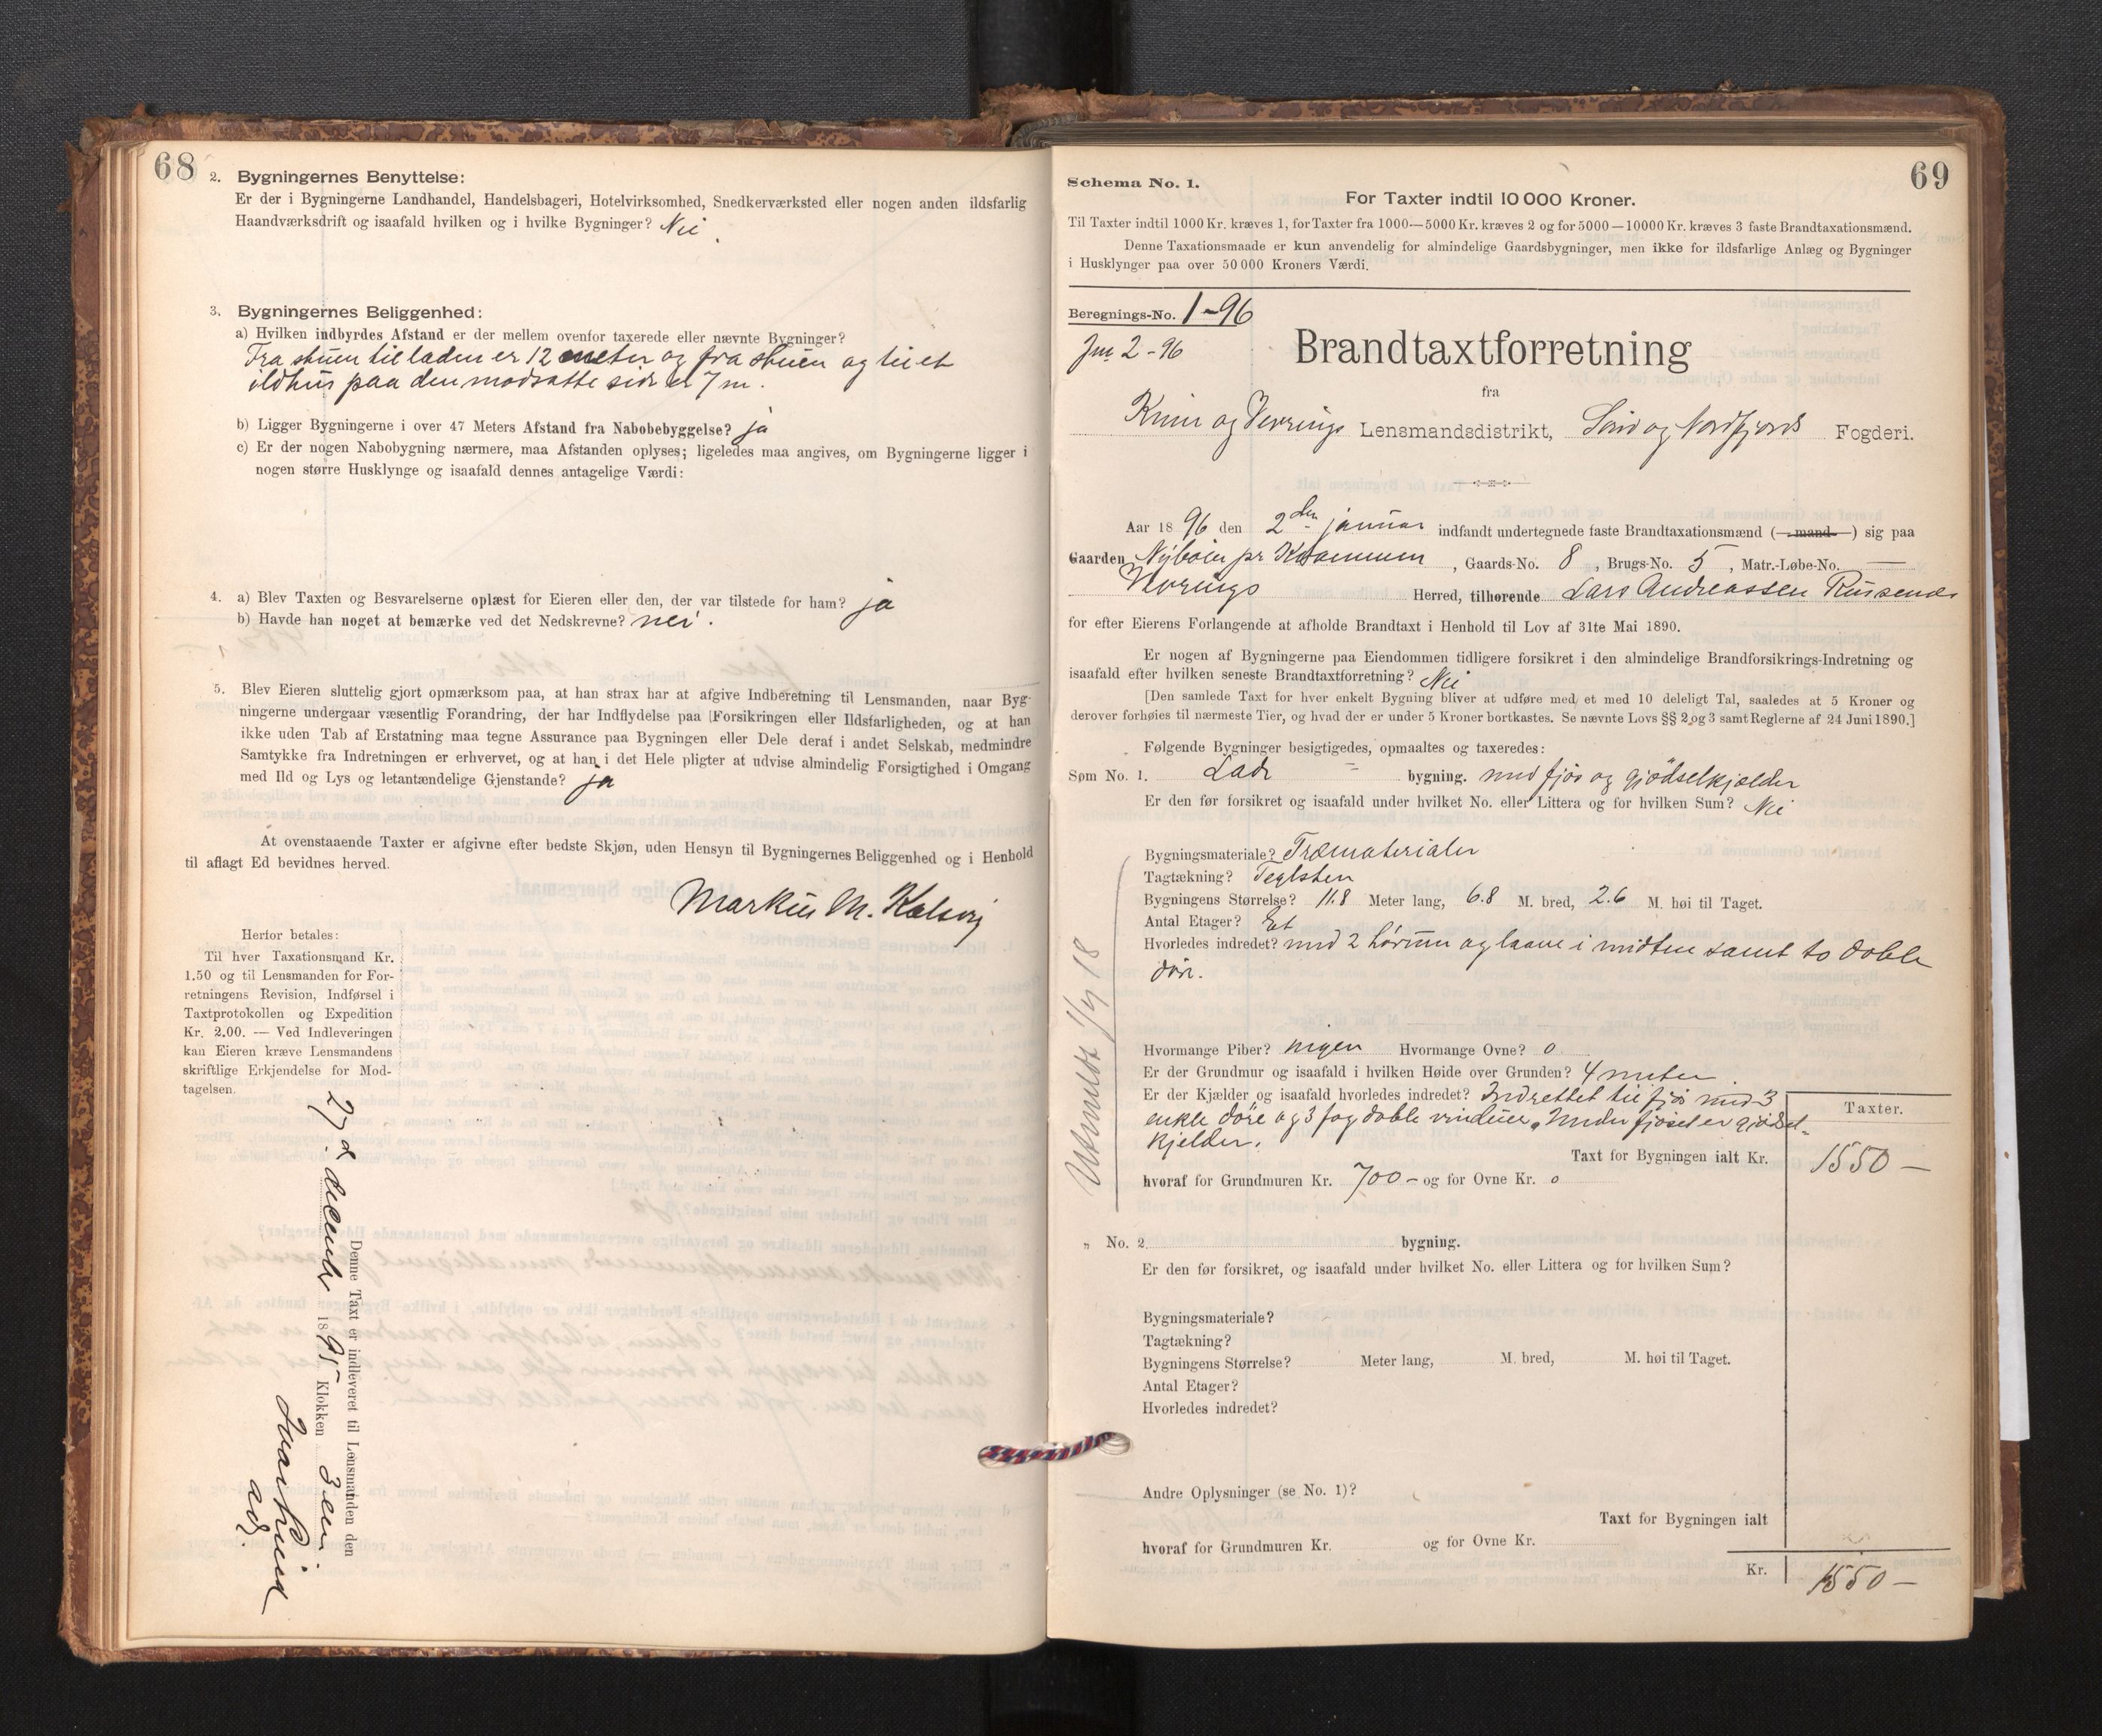 68
2. Bygningernes Benyttelse:
Er der i Bygningerne Landhandel, Handelsbageri, Hotelvirksomhed, Snedkerværksted eller nogen anden ildsfarlig
Haandværksdrift og isaafald hvilken og i hvilke Bygninger? Nei.
3. Bygningernes Beliggenhed:
a) Hvilken indbyrdes Afstand er der mellem ovenfor taxerede eller nævnte Bygninger?
Fra stuen til laden er 12 meter og fra stuen og til et
ildhus paa den modsatte side er 7 m.
b) Ligger Bygningerne i over 47 Meters Afstand fra Nabobebyggelse? ja
c) Er der nogen Nabobygning nærmere, maa Afstanden oplyses; ligeledes maa angives, om Bygningerne ligger i
nogen større Husklynge og isaafald dennes antagelige Værdi:
4. a) Blev Taxten og Besvarelserne oplæst for Eieren eller den, der var tilstede for ham? ja
b) Havde han noget at bemærke ved det Nedskrevne? nei.
5. Blev Eieren sluttelig gjort opmærksom paa, at han strax har at afgive Indberetning til Lensmanden, naar Byg-
ningerne undergaar væsentlig Forandring, der har Indflydelse paa Forsikringen eller Ildsfarligheden, og at han
ikke uden Tab af Erstatning maa tegne Assurance paa Bygningen eller Dele deraf i andet Selskab, medmindre
Samtykke fra Indretningen er erhvervet, og at han i det Hele pligter at udvise almindelig Forsigtighed i Omgang
med Ild og Lys og letantændelige Gjenstande? ja
At ovenstaaende Taxter er afgivne efter bedste Skjøn, uden Hensyn til Bygningernes Beliggenhed og i Henhold
til aflagt Ed bevidnes herved.
Markus M. Kalsvig
Herfor betales:
Til hver Taxationsmand Kr.
1.50 og til Lensmanden for For-
retningens Revision, Indførsel i
Taxtprotokollen og Expedition
Kr. 2.00. — Ved Indleveringen
kan Eieren kræve Lensmandens
skriftlige Erkjendelse for Mod-
tagelsen.
Denne Taxt er indleveret til Lensmanden den
27 d december 1895 Klokken 3 em
69
Schema No. 1.
For Taxter indtil 10 000 Kroner.
Til Taxter indtil 1000 Kr. kræves 1, for Taxter fra 1000—5000 Kr. kræves 2 og for 5000—10000 Kr. kræves 3 faste Brandtaxationsmænd.
Denne Taxationsmaade er kun anvendelig for almindelige Gaardsbygninger, men ikke for ildsfarlige Anlæg og Bygninger
i Husklynger paa over 50 000 Kroners Værdi.
Beregnings-No. 1-96
Jnr 2-96
Brandtaxtforretning
fra
Kinn og Vevrings Lensmandsdistrikt, Sønd og Nordfjords Fogderi.
Aar 1896 den 2den januar indfandt undertegnede faste Brandtaxationsmænd (—mand—) sig paa
Gaarden Nybøien pr , Gaards-No. 8, Brugs-No. 5, Matr.-Løbe-No. —
Vevrings Herred, tilhørende Lars Andreassen
for efter Eierens Forlangende at afholde Brandtaxt i Henhold til Lov af 31te Mai 1890.
Er nogen af Bygningerne paa Eiendommen tidligere forsikret i den almindelige Brandforsikrings-Indretning og
isaafald efter hvilken seneste Brandtaxtforretning? Nei
[Den samlede Taxt for hver enkelt Bygning bliver at udføre med et med 10 deleligt Tal, saaledes at 5 Kroner og
derover forhøies til nærmeste Tier, og hvad der er under 5 Kroner bortkastes. Se nævnte Lovs §§ 2 og 3 samt Reglerne af 24 Juni 1890.]
Følgende Bygninger besigtigedes, opmaaltes og taxeredes:
Som No. 1. Lade - bygning. med fjøs og gjødselkjælder
Er den før forsikret og isaafald under hvilket No. eller Littera og for hvilken Sum? Nei
Bygningsmateriale? Træmaterialer
Tagtækning? Teglsten
Bygningens Størrelse? 11.8 Meter lang, 6.8 M. bred, 2.6 M. høi til Taget.
Antal Etager? Et
Hvorledes indredet? med 2 hørum og laave i midten samt to doble
døre.
Hvormange Piber? ingen Hvormange Ovne? 0
Er der Grundmur og isaafald i hvilken Høide over Grunden? 4 meter.
Er der Kjælder og isaafald hvorledes indredet? Indrettet til fjøs med 3
enkle døre og 3 fag doble vinduer, Under fjøset er gjødsel-
kjelder.
Taxter.
Taxt for Bygningen ialt Kr. 1550 —
hvoraf for Grundmuren Kr. 700 - og for Ovne Kr. 0
Utmeldt 1/4 18
" No. 2 bygning.
Er den før forsikret, og isaafald under hvilket No. eller Littera og for hvilken Sum?
Bygningsmateriale?
Tagtækning?
Bygningens Størrelse? Meter lang, M. bred, M. høi til Taget.
Antal Etager?
Hvorledes indredet?
Andre Oplysninger (se No. 1)?
Taxt for Bygningen ialt
hvoraf for Grundmuren Kr. og for Ovne Kr.
Kr. 1550 —